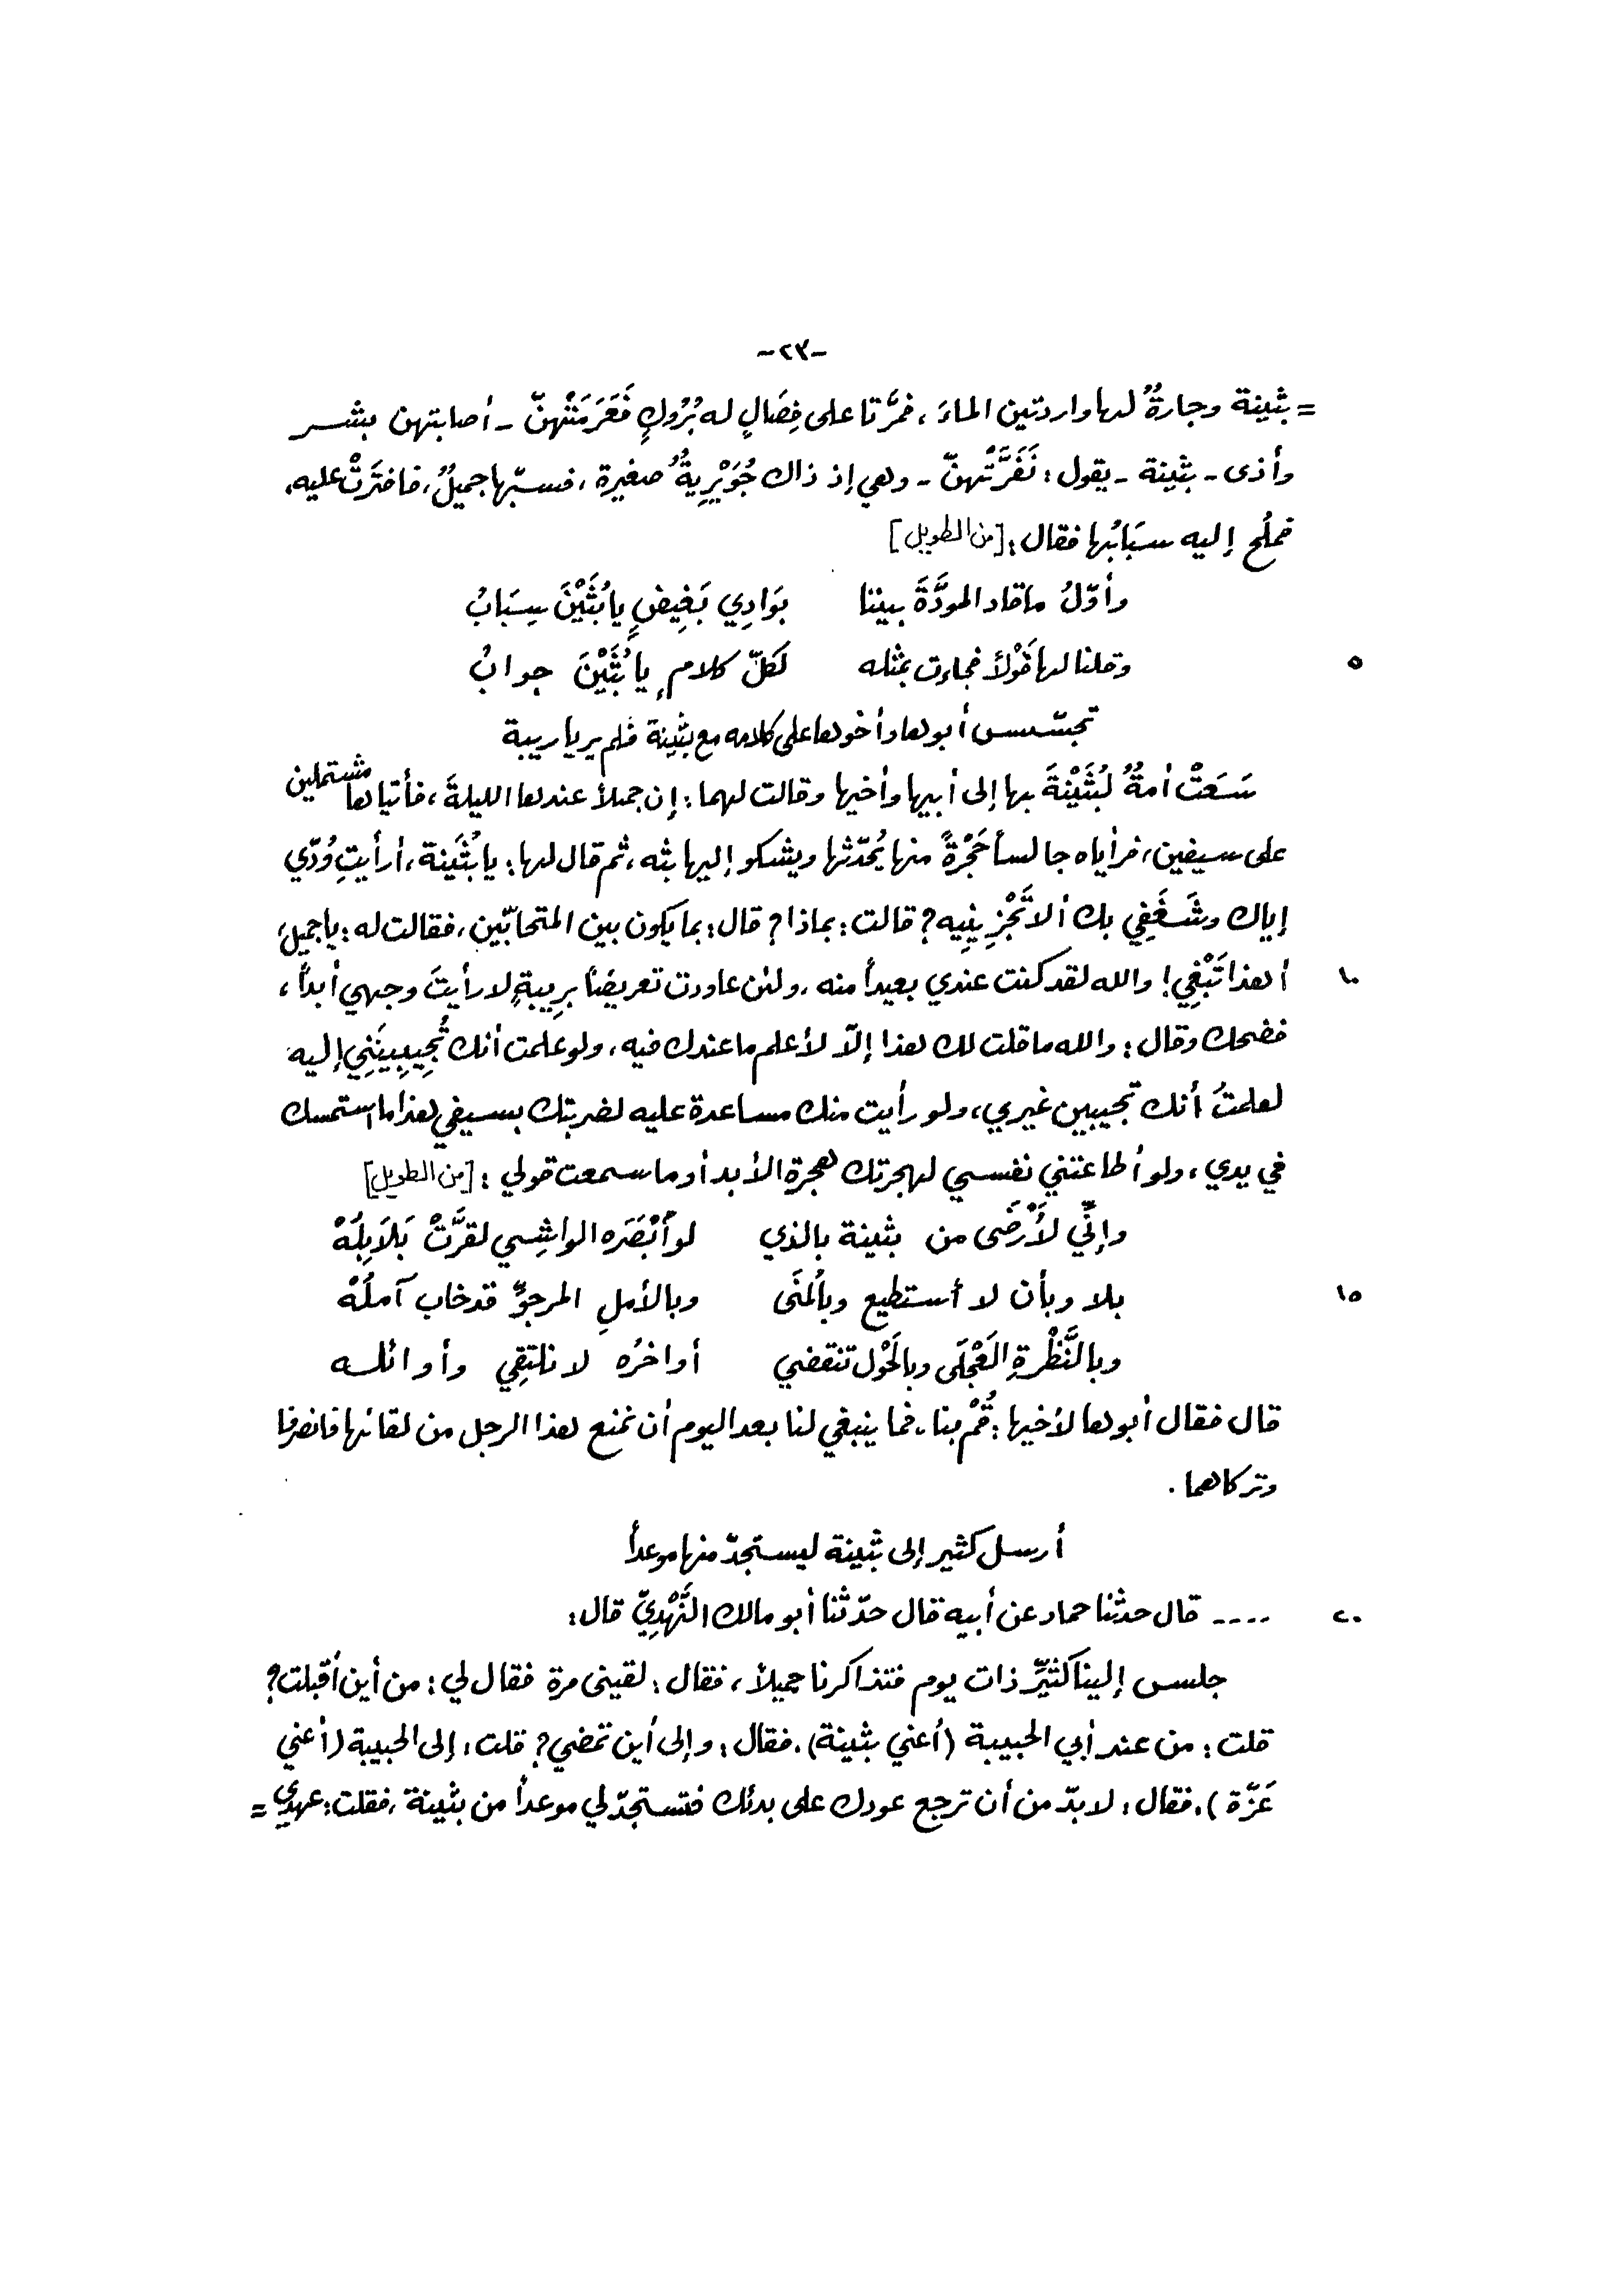 -٢٣-
= بثينة وجارةٌ لها واردتين الماءَ، فمرَّتا على فِصَالٍ له بُرُوكٍ فَعَرَمَتْهنّ - أصابتهن بشسر
وأذى - بثينة - يقول: نَفَرَتْهنّ - وهي إذ ذاك جُوَيْرِيةٌ صغيرة، فسبّها جميلٌ، فافترَتْ عليه،
فملُح إليه سبَابُها فقال: [من الطويل]
وأوّلُ ماقاد المودَّةَ بيننا بوَادِي بَغِيضٍ يا بُثَيْنَ سِبَابُ
٥ وقلنا لها قَوْلاً فجاءت بمثله لكلّ كلامٍ يا بُثَيْنَ جوابُ
تجسّس أبوها وأخوها على كلامه مع بثينة فلم يريا ريبة
سَعَتْ أمةٌ لبُثَيْنةَ بها إلى أبيها وأخيها وقالت لهما: إن جميلاً عندها الليلةَ، فأتياها مشتملين
على سيفين، فرأياه جالساً حَجْرةً منها يُحدّثها ويشكو إليها بثه، ثم قال لها: يا بُثَينة، أرأيتِ وُدّي
إياك وشَغَفِي بك ألا تَجْزِينِيه؟ قالت: بماذا؟ قال: بما يكون بين المتحابّين، فقالت له: يا جميلُ،
١٠ أهذا تَبْغِي! والله لقد كنت عندي بعيداً منه، ولئن عاودت تعريضاً برِيبةٍ لا رأيتَ وجهي أبداً،
فضحك وقال: والله ما قلت لك هذا إلّا لأعلم ما عندك فيه، ولو علمت أنك تُجِيبِينَنِي إليه
لعلمتُ أنك تجيبين غيري، ولو رأيت منك مساعدة عليه لضربتك بسيفي هذا ما استمسك
في يدي، ولو أطاعتني نفسي لهجرتك هجرة الأبد أو ما سمعت قولي: [من الطويل]
وإنِّي لأَرْضَى من بثينة بالذي لو أَبْصَرَه الواشِي لقرَّتْ بَلاَبِلُهْ
١٥ بلا وبأن لا أستطيع وبالُمنَى وبالأملِ المرجوِّ قد خاب آملُهْ
وبالنَّظْرةِ العَجْلَى وبالحَوْل تنقضي أواخرُه لا نلتقِي وأوائله
قال فقال أبوها لأخيها: قُمْ بنا، فما ينبغي لنا بعد اليوم أن نمنع هذا الرجل من لقائها فانصرفا
وتركاهما.
أرسل كثير إلى بثينة ليستجدّ منها موعداً
٢٠ ---- قال حدثنا حماد عن أبيه قال حدّثنا أبو مالك النَّهْدِيّ قال:
جلس إلينا كثيِّر ذات يوم فتذاكرنا جميلاً، فقال: لقيني مرة فقال لي: من أين أقبلت؟
قلت: من عند أبي الحبيبة (أعني بثينة). فقال: وإلى أين تمضي؟ قلت: إلى الحبيبة (أعني
عَزّة). فقال: لا بدّ من أن ترجع عودك على بدئك فتستجدّ لي موعداً من بثينة، فقلت: عهدي =